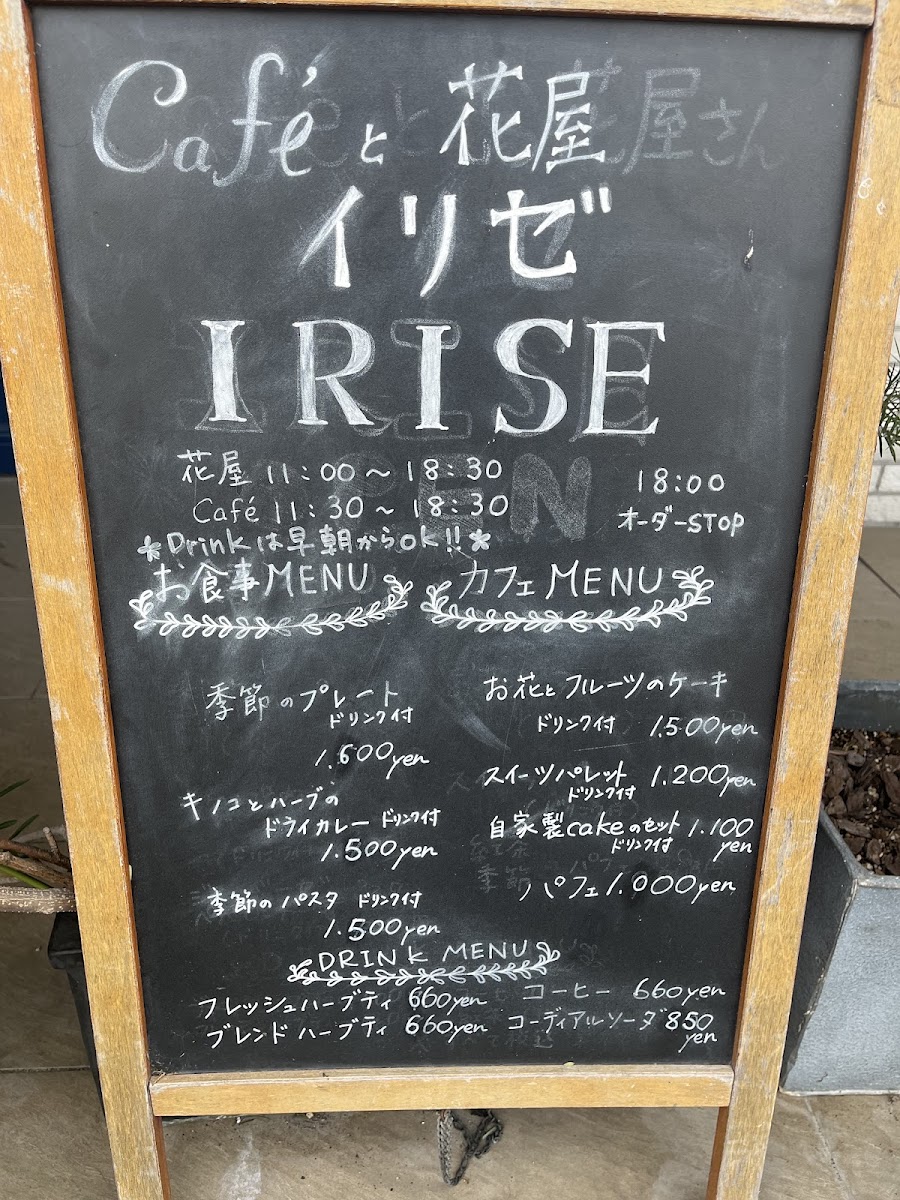 Café と 花屋
イリゼ
IRISE
花屋 11:00〜18:30
Café 11:30〜18:30
18:00
オーダーSTOP
*Drinkは早朝からok!!*
お食事MENU
カフェMENU
季節のプレート
ドリンク付
1.600yen
キノコとハーブの
ドライカレー ドリンク付
1.500yen
季節のパスタ ドリンク付
1.500yen
お花とフルーツのケーキ
ドリンク付 1.500yen
スイーツパレット 1.200yen
ドリンク付
自家製cakeのセット 1.100
ドリンク付 yen
パフェ 1.000yen
DRINK MENU
フレッシュハーブティ 660yen
ブレンドハーブティ 660yen
コーヒー 660yen
コーディアルソーダ 850
yen